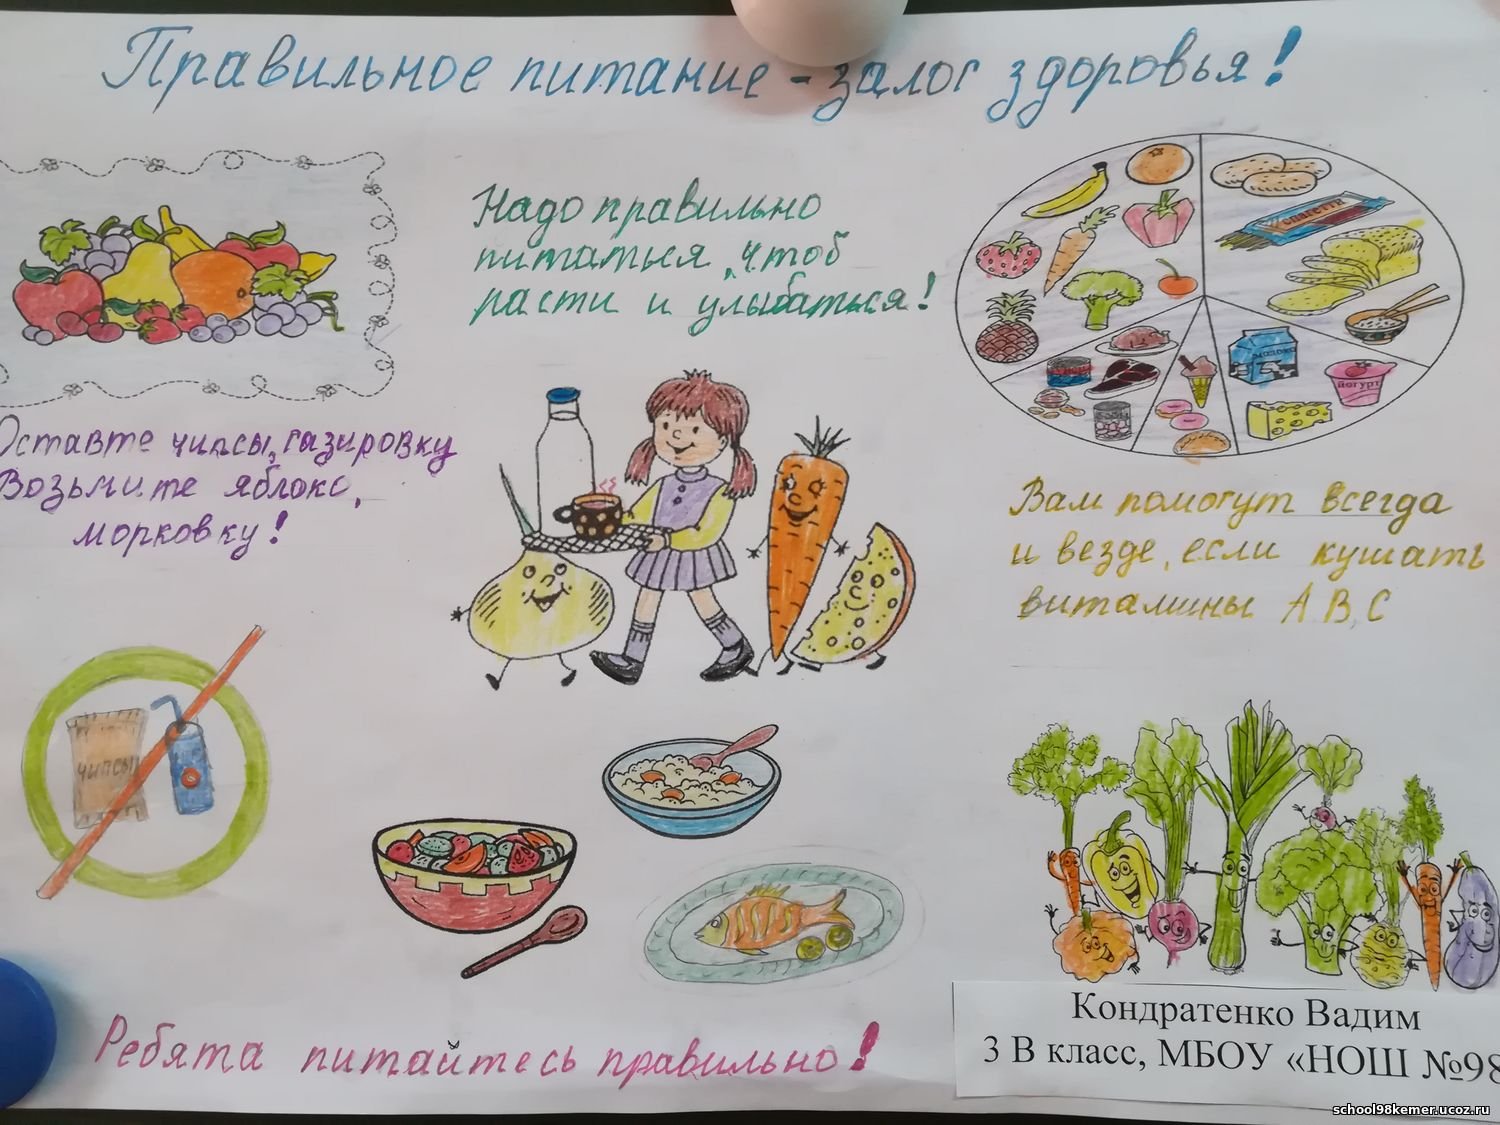 Правильное питание - залог здоровья!
Надо правильно
питаться, чтоб
расти и улыбаться!
спагетти
молоко
йогурт
Оставте чипсы, газировку
Возьмите яблоко,
морковку!
Вам помогут всегда
и везде, если кушать
витамины А, В, С
чипсы
Ребята питайтесь правильно!
Кондратенко Вадим
3 В класс, МБОУ «НОШ №98
school98kemer.ucoz.ru